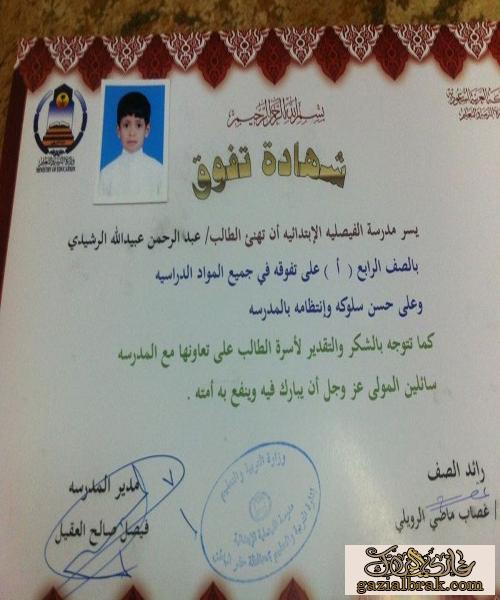 بسم الله الرحمن الرحيم
وزارة التربية والتعليم
MINISTRY OF EDUCATION
شهادة تفوق
يسر مدرسة الفيصليه الإبتدائيه أن تهنئ الطالب/ عبد الرحمن عبيدالله الرشيدي
بالصف الرابع ( أ ) على تفوقه في جميع المواد الدراسيه
وعلى حسن سلوكه وإنتظامه بالمدرسه
كما تتوجه بالشكر والتقدير لأسرة الطالب على تعاونها مع المدرسه
سائلين المولى عز وجل أن يبارك فيه وينفع به أمته .
رائد الصف
/ غصاب ماضي الرويلي
مدير المدرسه
فيصل صالح العقيل
وزارة التربية والتعليم
gazialbrak.com